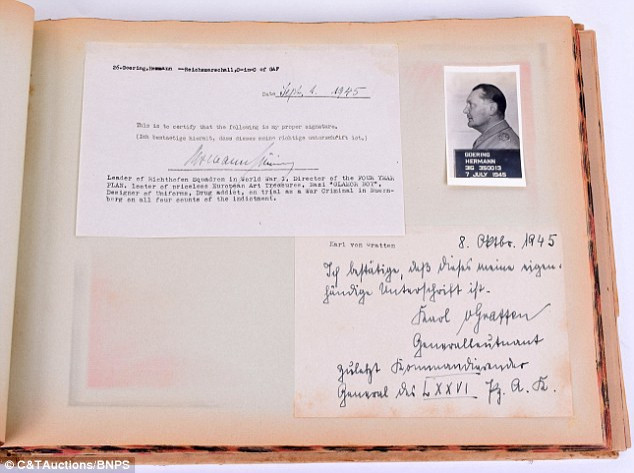 26.Goering,Hermann --Reichsmarschall,C-in-C of GAF
Date Sept. 1945
This is to certify that the following is my proper signature.
(Ich bestaetige hiermit, dass dieses meine richtige unterschrift ist.)
Hermann Göring
Leader of Richthofen Squadron in World War I, Director of the FOUR YEAR
PLAN, looter of priceless European Art Treasures, Nazi "GLAMOR BOY",
Designer of Uniforms, Drug addict, on trial as a War Criminal in Nuern-
berg on all four counts of the indictment.
GOERING
HERMANN
31G 350013
7 JULY 1945
Karl von Graffen
8. Oktbr. 1945
Ich bestätige, daß dieses meine eigen-
händige Unterschrift ist.
Karl vGraffen
Generalleutnant
zuletzt Kommandierender
General des LXXVI Pz. A. K.
© C&TAuctions/BNPS